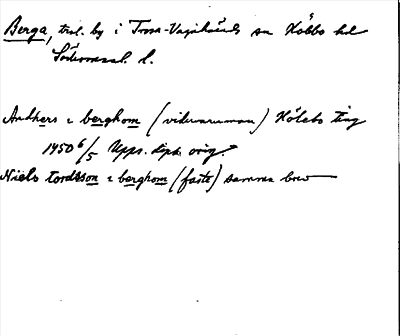 Berga, trol. by i Trosa-Vagnhärads sn Hölebo hd
Södermanl. l.
Andhers i berghom (vidnarruman) Hölebo ting
1450 6/5 Upps. dipl. orig.
Niels tordsson i berghom (faste) samma brev